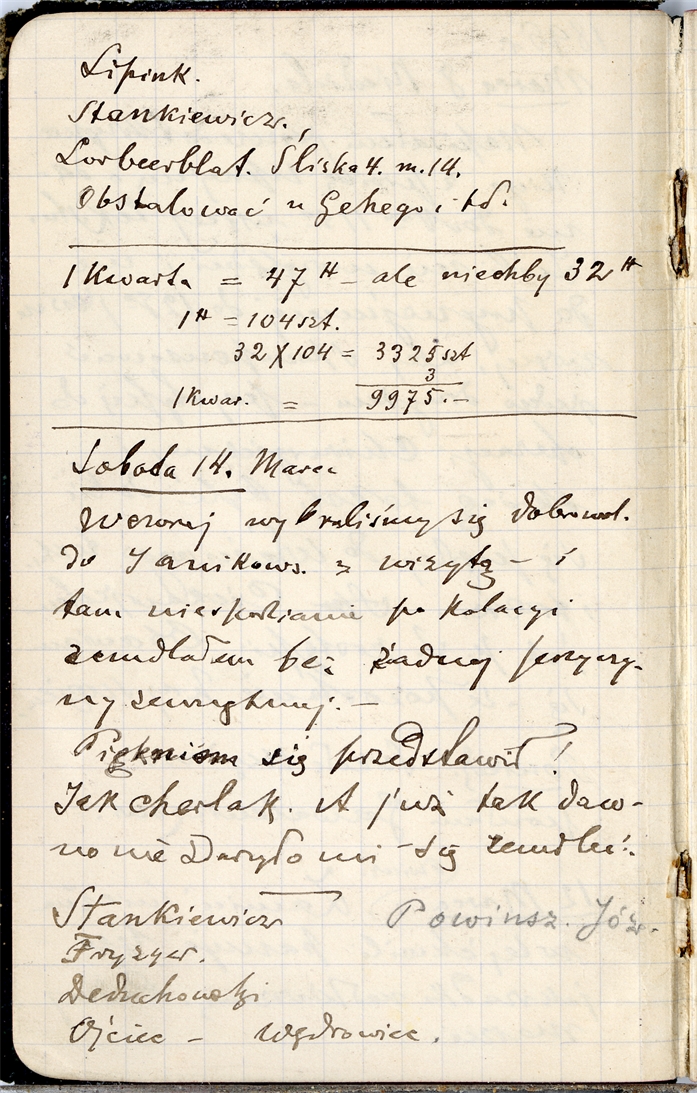 Lipink.
Stankiewicz.,
Lorbeerblat. Śliska 4. m. 14.
Obstalować u Gehego i td.
1 Kwarta = 47 ℔ – ale niechby 32 ℔
1 ℔ = 104 szt.
32 X 104 = 3325 szt
3
1 Kwar. = 9975.–
Sobota 14. Marca
Wczoraj wybraliśmy się dobrowol.
do Janikows. z wizytą – i
tam niespodzianie po Kolacyi
zemdlałem bez żadnej przyczy-
ny zewnętrznej. –
Piękniem się przedstawił!
Jak cherlak. A już tak daw-
no nie zdarzyło mi się zemdleć.
Stankiewicz Powinsz. Józ.
Fryzyer.
Ojciec – Wędrowiec.